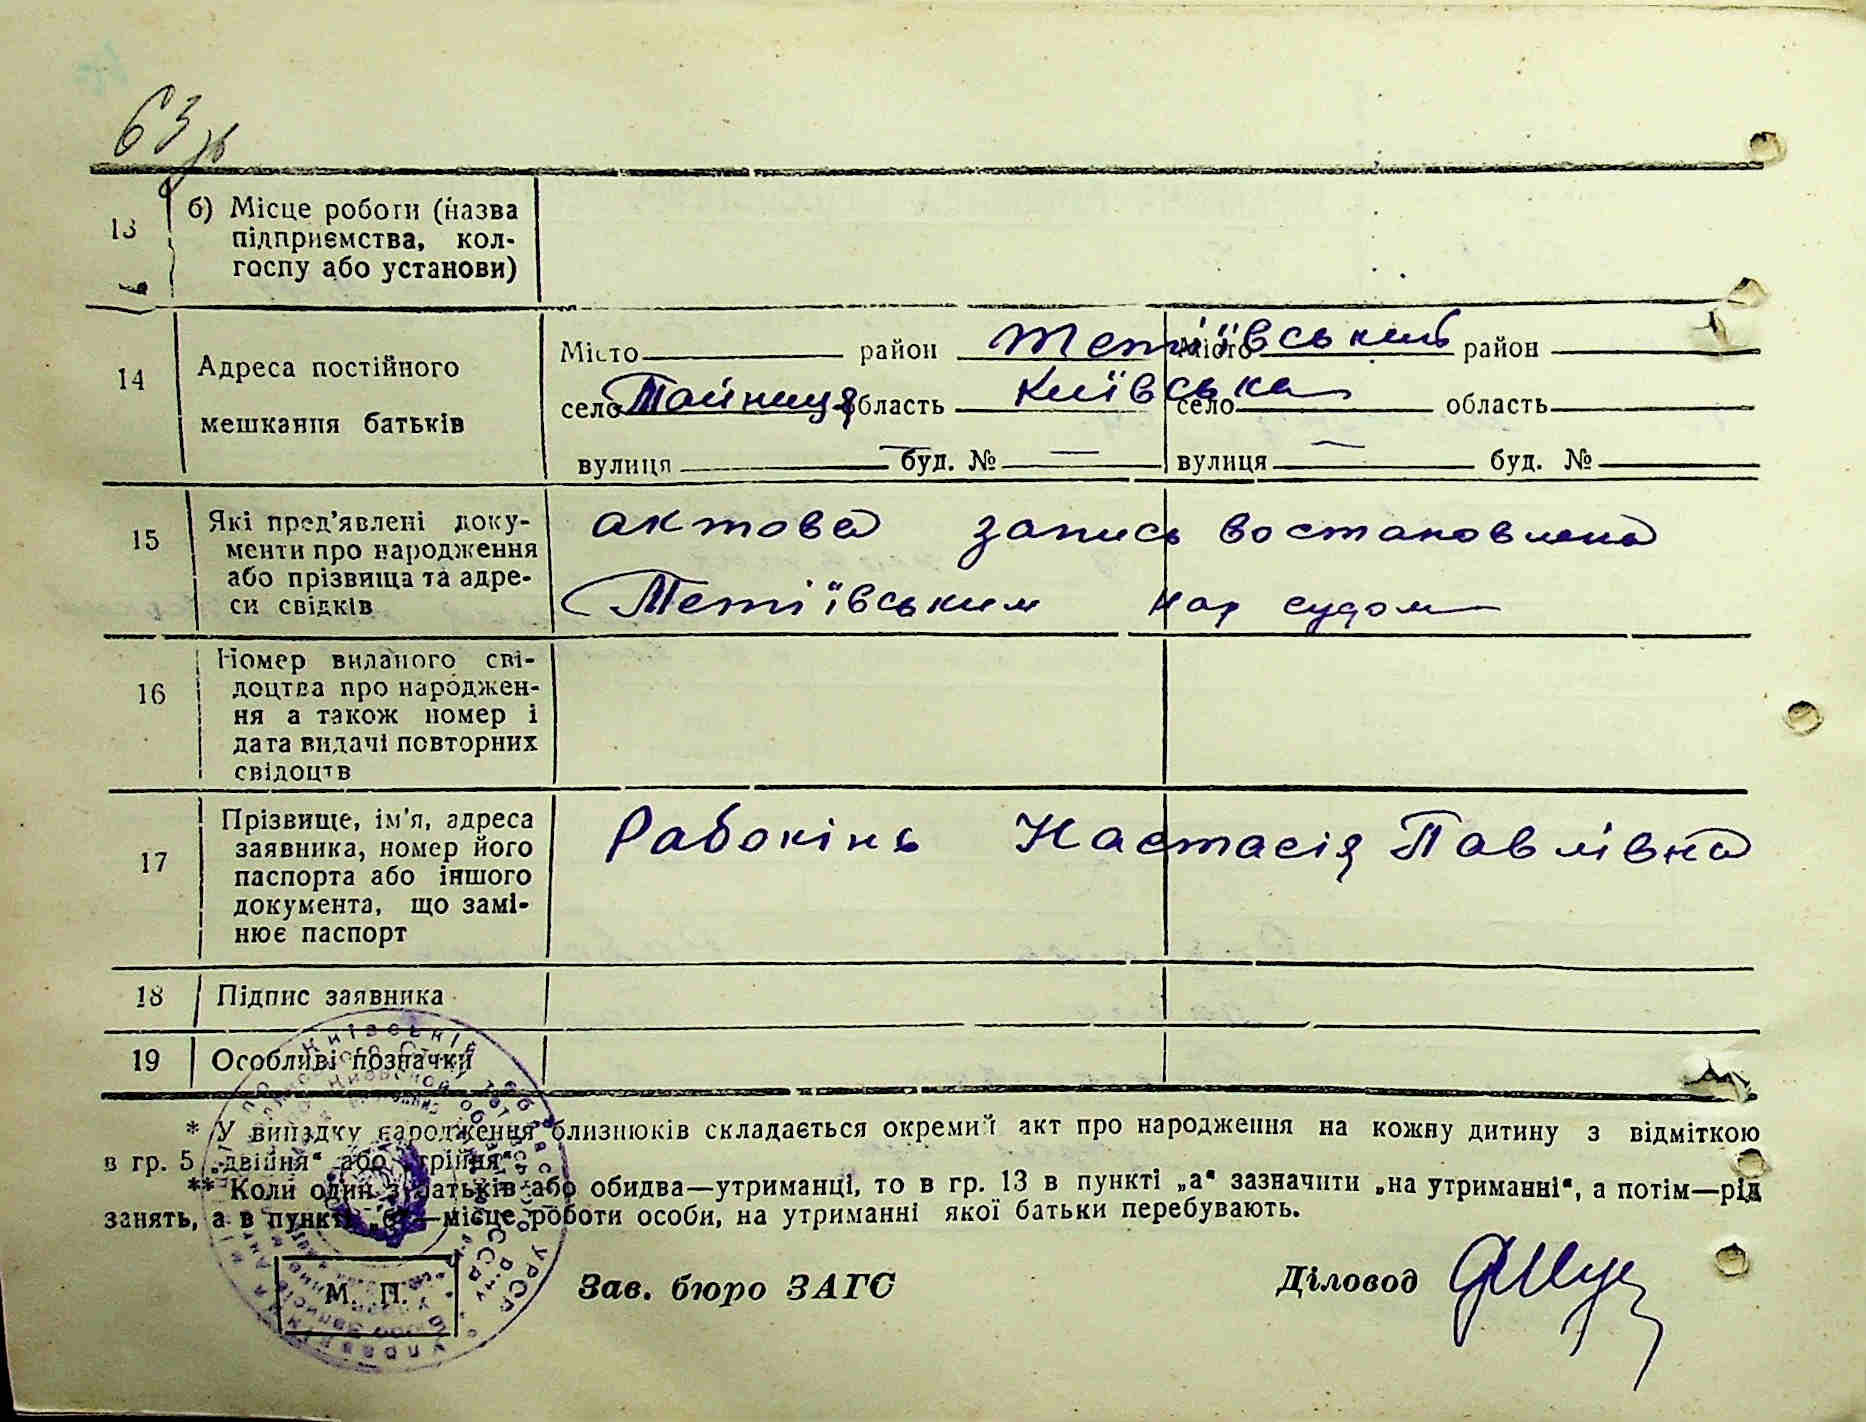 63 зв
13 б) Місце роботи (назва
підприємства, кол-
госпу або установи)
14 Адреса постійного
мешкання батьків
Місто район Тетіївський Місто район
село Тайниця область Київська село область
вулиця — буд. № — вулиця — буд. №
15 Які пред'явлені доку-
менти про народження
або прізвища та адре-
си свідків
актова запись востановлена
Тетіївським нар судом
16 Номер виданого сві-
доцтва про народжен-
ня а також номер і
дата видачі повторних
свідоцтв
17 Прізвище, ім'я, адреса
заявника, номер його
паспорта або іншого
документа, що замі-
нює паспорт
Рабокінь Настасія Павлівна
18 Підпис заявника
19 Особливі позначки
* У випадку народження близнюків складається окремий акт про народження на кожну дитину з відміткою
в гр. 5 „двійня“ або „трійня“.
** Коли один з батьків або обидва—утриманці, то в гр. 13 в пункті „а“ зазначити „на утриманні“, а потім—рід
занять, а в пункті „б“—місце роботи особи, на утриманні якої батьки перебувають.
М. П. Зав. бюро ЗАГС Діловод